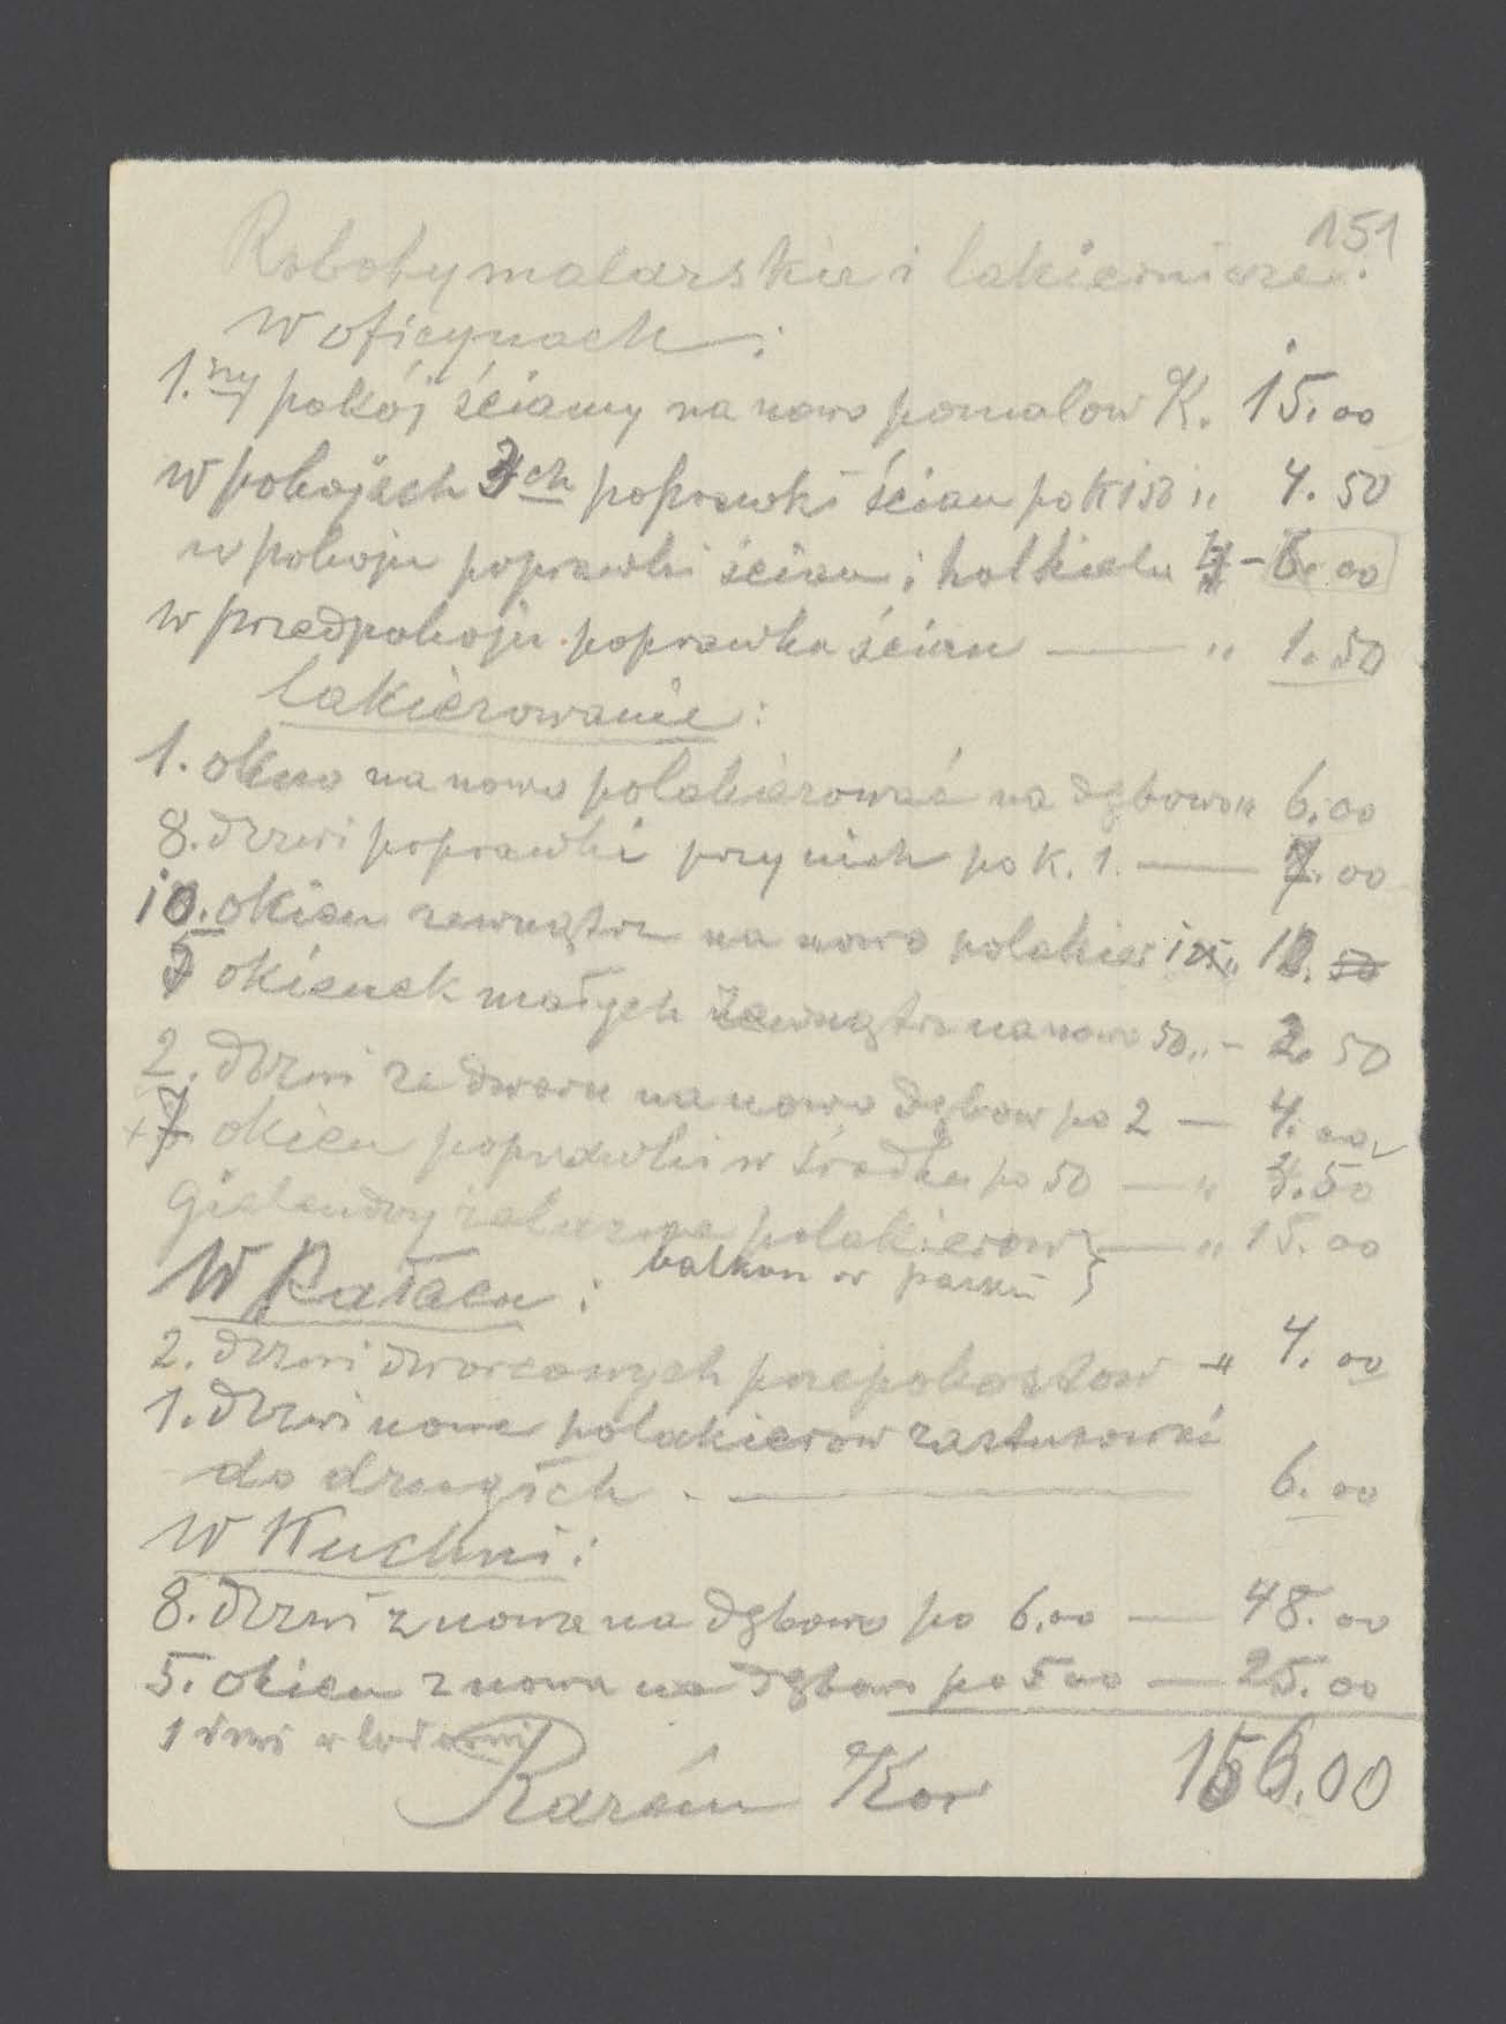 151
Roboty malarskie i lakiernicze.
w oficynach :
1.ny pokój ściany na nowo pomalow K. 15.00
w pokojach 3ch poprawki ścian po K 1 50 " 4.50
w pokoju poprawki ścian i holkielu - 6.00
w przedpokoju poprawka ścian — " 1.50
Lakierowanie :
1. okno na nowo polakierować na dębowo " 6.00
8. drzwi poprawki przy nich po K. 1. — .00
10. okien zewnątrz na nowo polakier " 50
5 okienek małych zewnątrz na nowo 50 " - 2.50
2. drzwi ze dworu na nowo dębow po 2 — 4.00
+ 7. okien poprawki w środku po 50 — " 3.50
Gielendry żelazne polakierow } — " 15.00
balkon w parku }
W Pałacu :
2. drzwi dworcowych przepokostow - " 4.00
1. drzwi nowe polakierow zastosować
do drugich . — 6.00
W Kuchni :
8. drzwi z nowa na dębowo po 6.00 — 48.00
5. okien z nowa na dębow po 5 00 — 25.00
1 drzwi w lodowni
Razem Kor 156.00